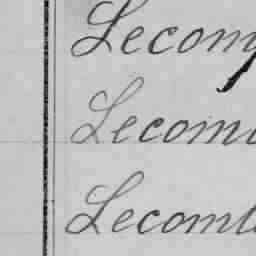 Lecomp
Lecomt
Lecomt